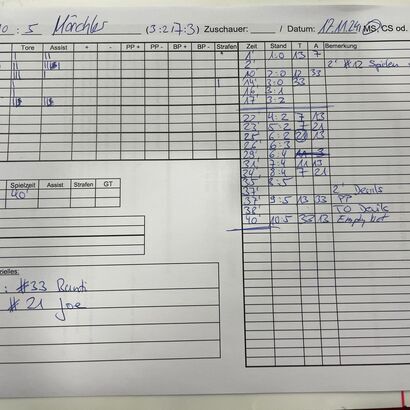 10 : 5 Mörchles (3:2 / 7:3) Zuschauer: / Datum: 17.11.24 MS, CS od.
Tore Assist + - PP + PP - BP + BP - Strafen Zeit Stand T A Bemerkung
1' 1:0 13 7
2' 2' #12 Spielen
10' 2:0 12 33
14' 3:0 33
16' 3:1
17' 3:2
22' 4:2 7 13
23' 5:2 7 21
25' 6:2 21 13
26' 6:3
29' 6:4
31' 7:4 11 13
34' 8:4 7 21
35' 8:5
37' 2' Devils
37' 9:5 13 33 PP
38' TO Devils
40' 10:5 33 13 Empty Net
Spielzeit Assist Strafen GT
40'
: #33 Runti
#21 Joe